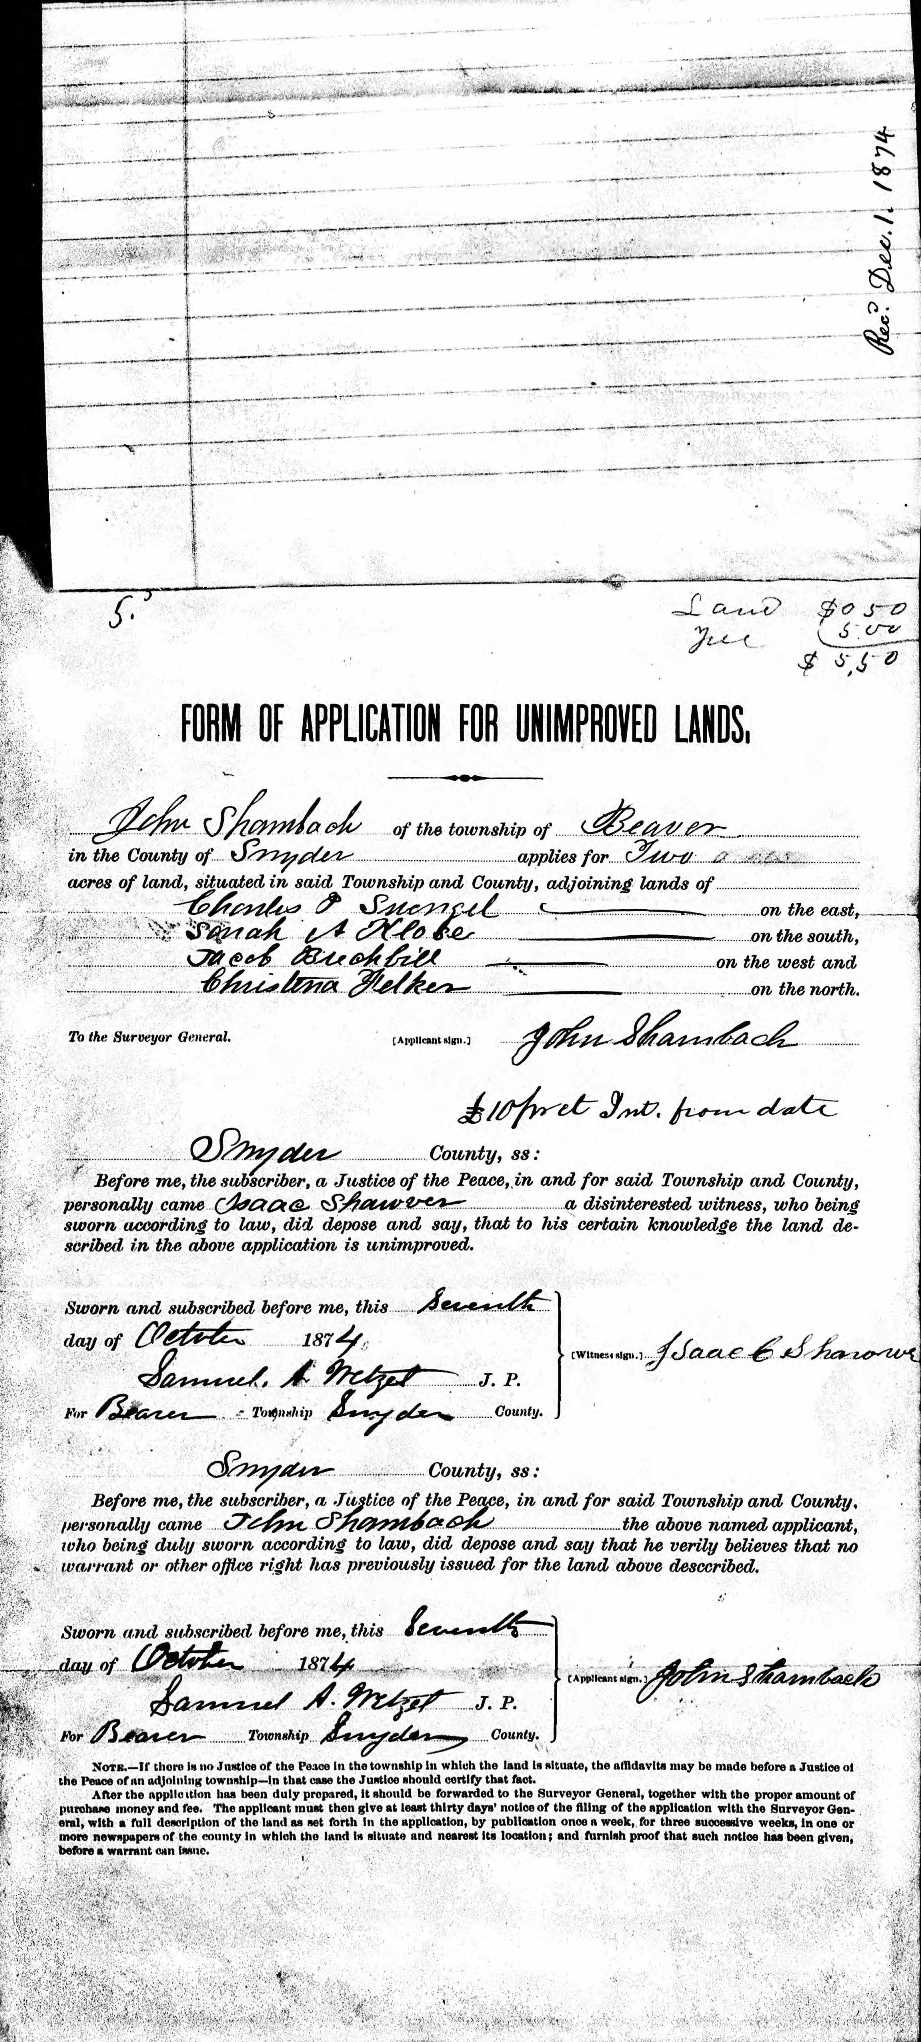 Rec.d Dec. 1. 1874
5.
Land $0 50
Fee 5.00
$ 5,50
FORM OF APPLICATION FOR UNIMPROVED LANDS.
John Shambach of the township of Beaver
in the County of Snyder applies for Two
acres of land, situated in said Township and County, adjoining lands of
Charles P on the east,
Sarah A Klose on the south,
Jacob Brechbill on the west and
Christena Felker on the north.
To the Surveyor General. [Applicant sign.] John Shambach
£10 pr ct Int. from date
Snyder County, ss:
Before me, the subscriber, a Justice of the Peace, in and for said Township and County,
personally came Isaac Shawver a disinterested witness, who being
sworn according to law, did depose and say, that to his certain knowledge the land de-
scribed in the above application is unimproved.
Sworn and subscribed before me, this Seventh
day of October 1874,
[Witness sign.] Isaac C
Samuel. A. Wetzel J. P.
For Beaver Township Snyder County.
Snyder County, ss:
Before me, the subscriber, a Justice of the Peace, in and for said Township and County,
personally came John Shambach the above named applicant,
who being duly sworn according to law, did depose and say that he verily believes that no
warrant or other office right has previously issued for the land above desccribed.
Sworn and subscribed before me, this Seventh
day of October 1874
[Applicant sign.] John Shambach
Samuel A. Wetzel J. P.
For Beaver Township Snyder County.
NOTE.—If there is no Justice of the Peace in the township in which the land is situate, the affidavits may be made before a Justice of
the Peace of an adjoining township—in that case the Justice should certify that fact.
After the application has been duly prepared, it should be forwarded to the Surveyor General, together with the proper amount of
purchase money and fee. The applicant must then give at least thirty days' notice of the filing of the application with the Surveyor Gen-
eral, with a full description of the land as set forth in the application, by publication once a week, for three successive weeks, in one or
more newspapers of the county in which the land is situate and nearest its location; and furnish proof that such notice has been given,
before a warrant can issue.